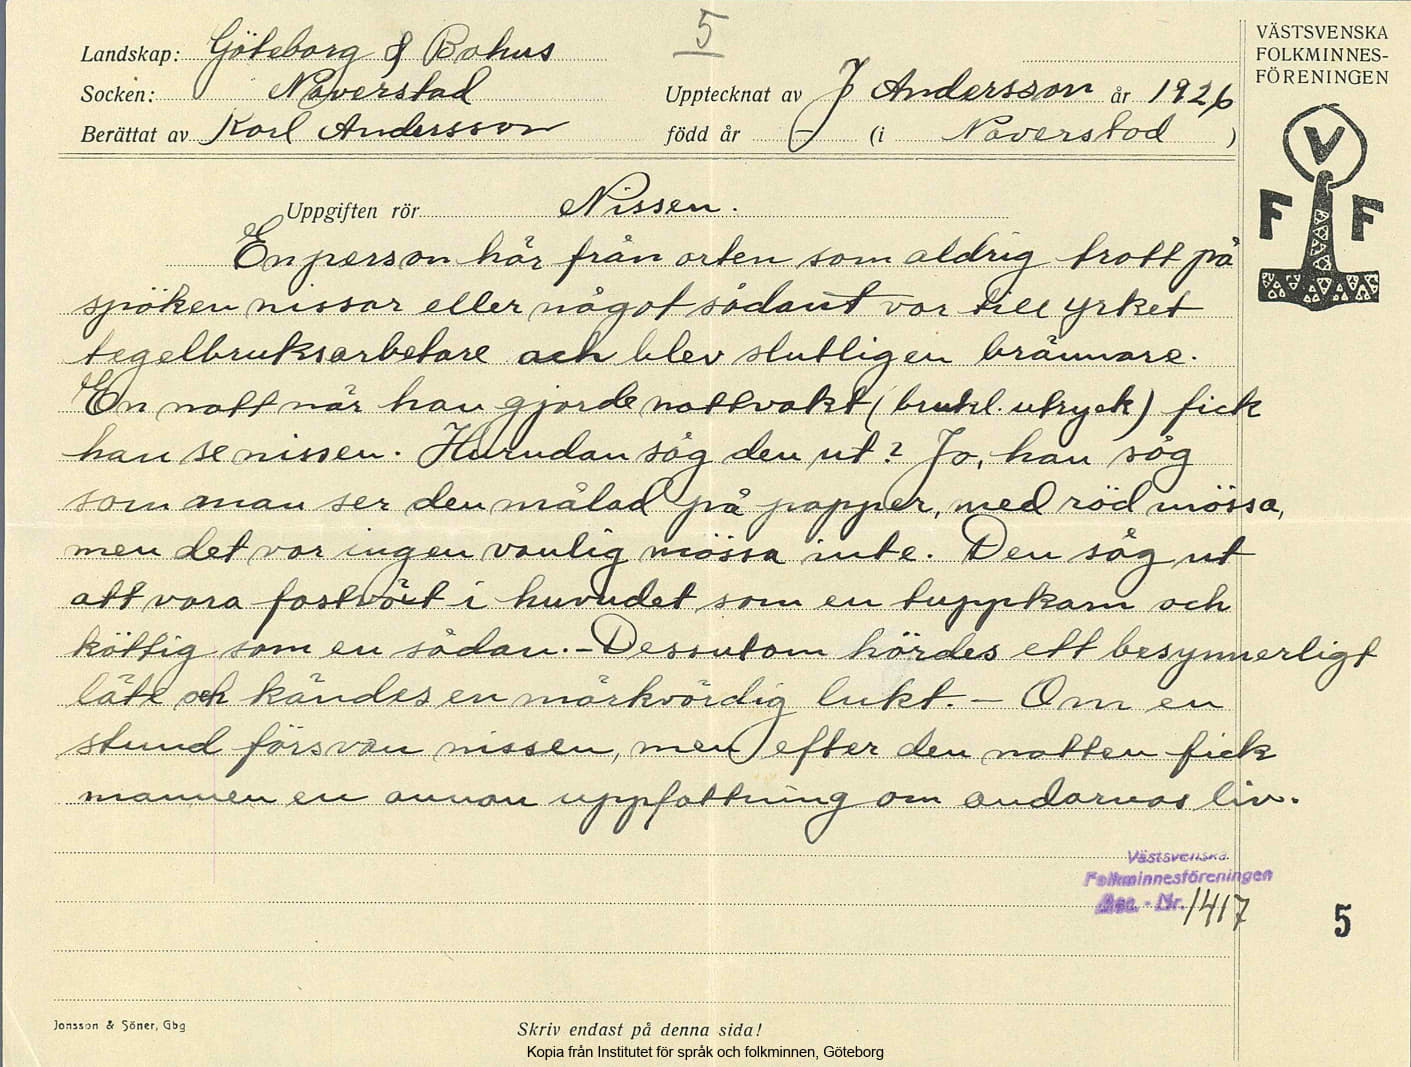 5
VÄSTSVENSKA
FOLKMINNES-
FÖRENINGEN
V
F F
Landskap: Göteborg & Bohus
Socken: Naverstad
Upptecknat av J Andersson år 1926
Berättat av Karl Andersson
född år – (i Naverstad )
Uppgiften rör Nissen.
En person här från orten som aldrig trott på
spöken nissar eller något sådant var till yrket
tegelbruksarbetare och blev slutligen brännare.
En natt när han gjorde nattvakt (brukl. utryck) fick
han se nissen. Hurudan såg den ut? Jo, han såg
som man ser den målad på papper, med röd mössa,
men det var ingen vanlig mössa inte. Den såg ut
att vara fastväxt i huvudet som en tuppkam och
köttig som en sådan. – Dessutom hördes ett besynnerligt
läte och kändes en märkvärdig lukt. – Om en
stund försvan nissen, men efter den natten fick
mannen en annan uppfattning om andarnas liv.
Västsvenska
Folkminnesföreningen
Acc. - Nr. 1417
5
Jonsson & Söner, Gbg
Skriv endast på denna sida!
Kopia från Institutet för språk och folkminnen, Göteborg